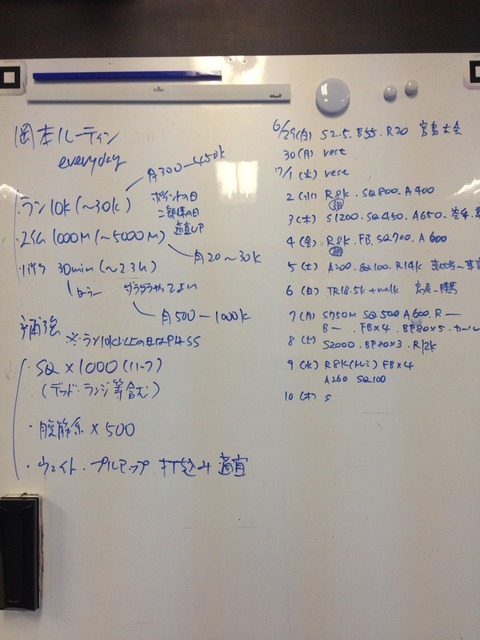 岡本ルーティン
everyday
月300〜450k
・ラン10k(〜30k)
ポイントの日
二部練の日
適宜UP
・スイム1000M(〜5000M)
月20〜30k
・バイク 30min(〜2.3h)
月500〜1000k
補強
※ラン10k以上の日は
SQ×1000(ハーフ)
(デッド・ランジ等含む)
・腹筋系×500
・ウェイト・プルアップ・打込み 適宜
6/29(日) S2.5. B55. R20 宮島大会
30(月) rest
7/1(火) rest
2(水) R8k. SQ800. A400
朝
3(木) S1200. SQ450. A650.
4(金) R8k. FB. SQ700. A600
朝
5(土) A200. SQ100. R14k
6(日) TR18.5k+walk
7(月) S750M SQ500 A600. R—
B—. FB×4. BP80×5.
8(火) S2000. BP80×3. R12k
9(水) R8k(Hi) FB×4
A260 SQ100
10(木) S